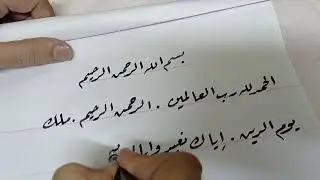 بسم الله الرحمن الرحيم
الحمد لله رب العالمين . الرحمن الرحيم . ملك
يوم الدين . إياك نعبد وإيا